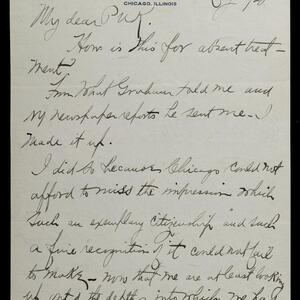 CHICAGO, ILLINOIS
My dear P.W.K.
How is this for absent treat-
ment?
From what Graham told me and
NY Newspaper reports he sent me – I
made it up.
I did so because Chicago could not
afford to miss the impression which
such an exemplary citizenship and such
a fine recognition of it could not fail
to make – now that we are at least looking
up out of the depths into which we had